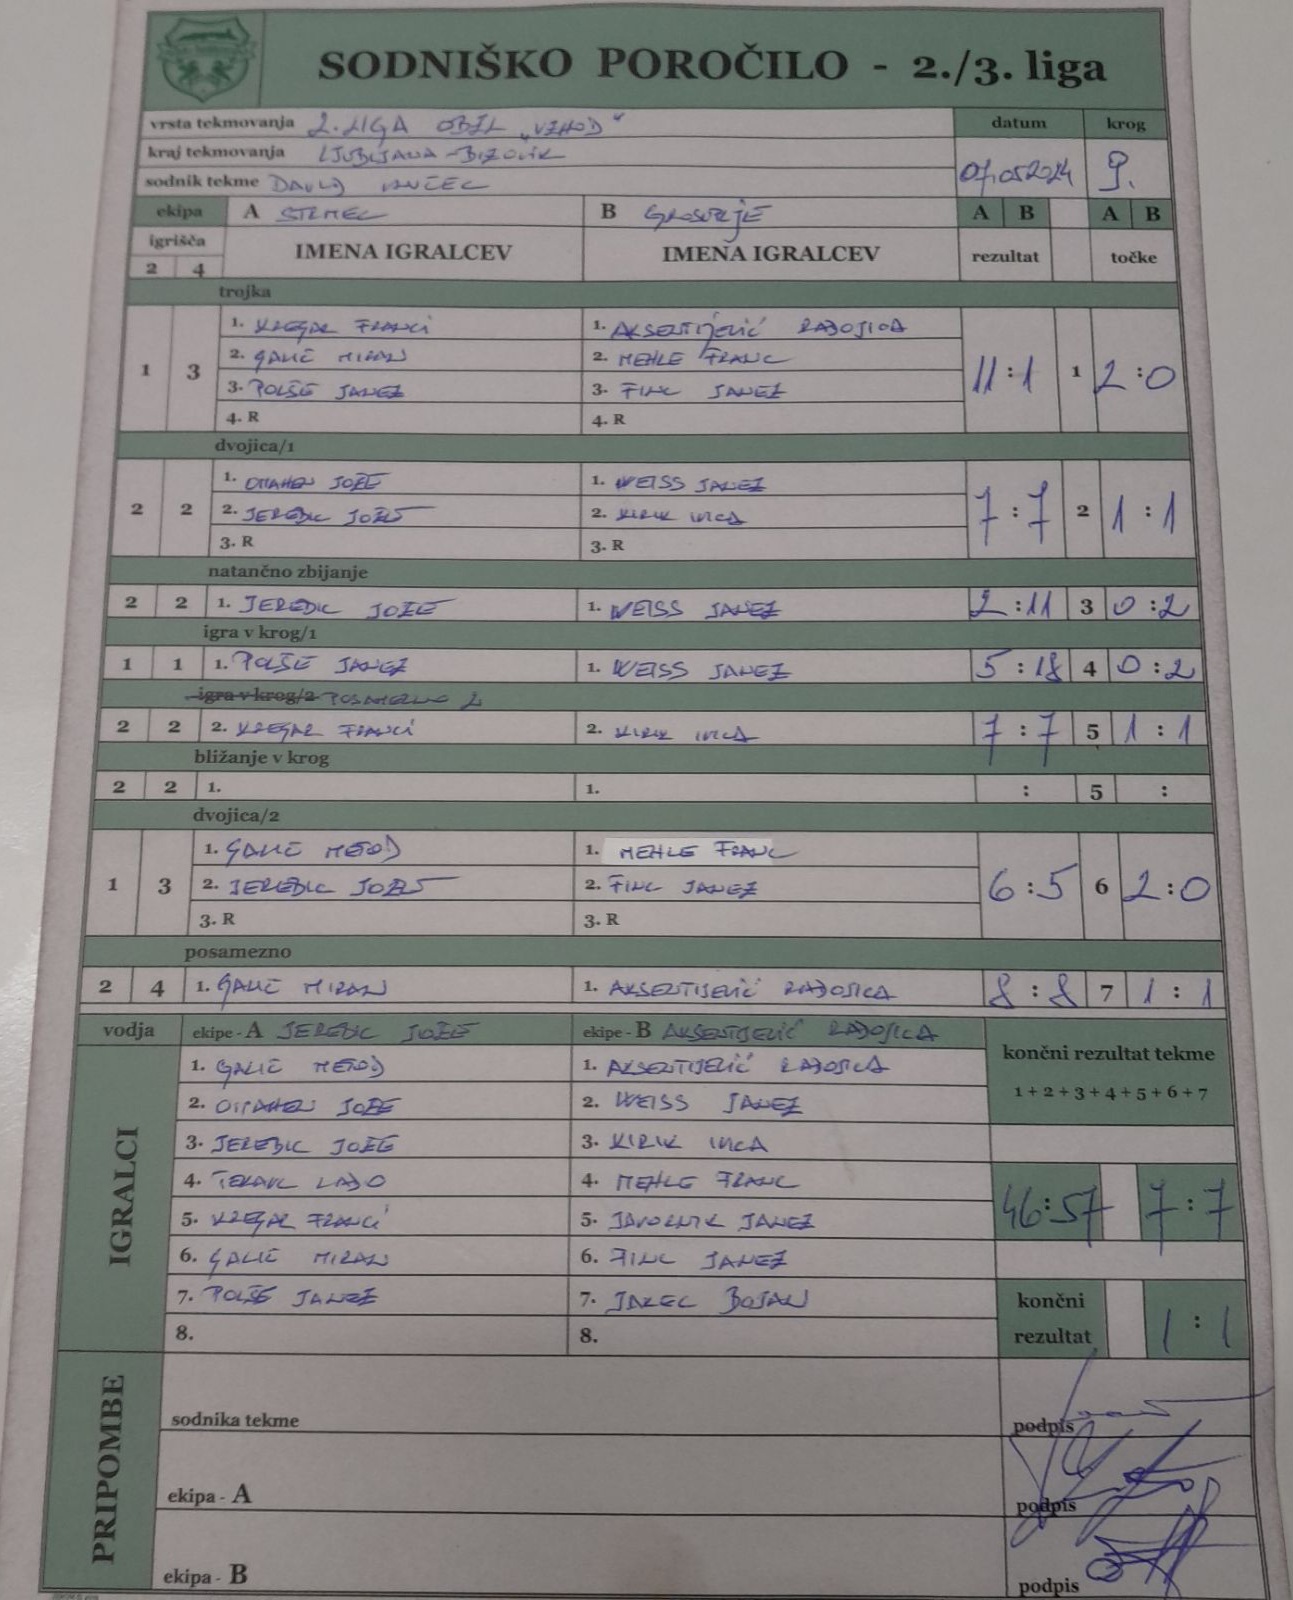 SODNIŠKO POROČILO - 2./3. liga
vrsta tekmovanja 2. LIGA OBZL „VZHOD" datum krog
kraj tekmovanja LJUBLJANA-BIZOVIK 07.05.2024 9.
sodnik tekme DAVID
ekipa A STRMEC B GROSUPLJE A B A B
igrišča IMENA IGRALCEV IMENA IGRALCEV rezultat točke
2 4
trojka
1. KREGAR FRANCI 1. AKSENTIJEVIĆ RADOJICA
1 3 2. GALIČ MIRAN 2. MEHLE FRANC 11:1 1 2:0
3. POLŠE JANEZ 3. FINC JANEZ
4. R 4. R
dvojica/1
1. OMAHEN JOŽE 1. WEISS JANEZ
2 2 2. JEREBIC JOŽE 2. KIRIK INCA 7:7 2 1:1
3. R 3. R
natančno zbijanje
2 2 1. JEREBIC JOŽE 1. WEISS JANEZ 2:11 3 0:2
igra v krog/1
1 1 1. POLŠE JANEZ 1. WEISS JANEZ 5:18 4 0:2
igra v krog/2 POSAMEZNO 2
2 2 2. KREGAR FRANCI 2. KIRIK INCA 7:7 5 1:1
bližanje v krog
2 2 1. 1. : 5 :
dvojica/2
1. GALIČ METOD 1. MEHLE FRANC
1 3 2. JEREBIC JOŽE 2. FINC JANEZ 6:5 6 2:0
3. R 3. R
posamezno
2 4 1. GALIČ MIRAN 1. AKSENTIJEVIĆ RADOJICA 8:8 7 1:1
vodja ekipe - A JEREBIC JOŽE ekipe - B AKSENTIJEVIĆ RADOJICA
končni rezultat tekme
1+2+3+4+5+6+7
IGRALCI
1. GALIČ METOD 1. AKSENTIJEVIĆ RADOJICA
2. OMAHEN JOŽE 2. WEISS JANEZ
3. JEREBIC JOŽE 3. KIRIK INCA
4. TEKAVC LADO 4. MEHLE FRANC
5. KREGAR FRANCI 5. JAVORNIK JANEZ 46:57 7:7
6. GALIČ MIRAN 6. FINC JANEZ
7. POLŠE JANEZ 7. JAKEC BOJAN
8. 8. končni rezultat 1:1
PRIPOMBE
sodnika tekme podpis
ekipa - A podpis
ekipa - B podpis